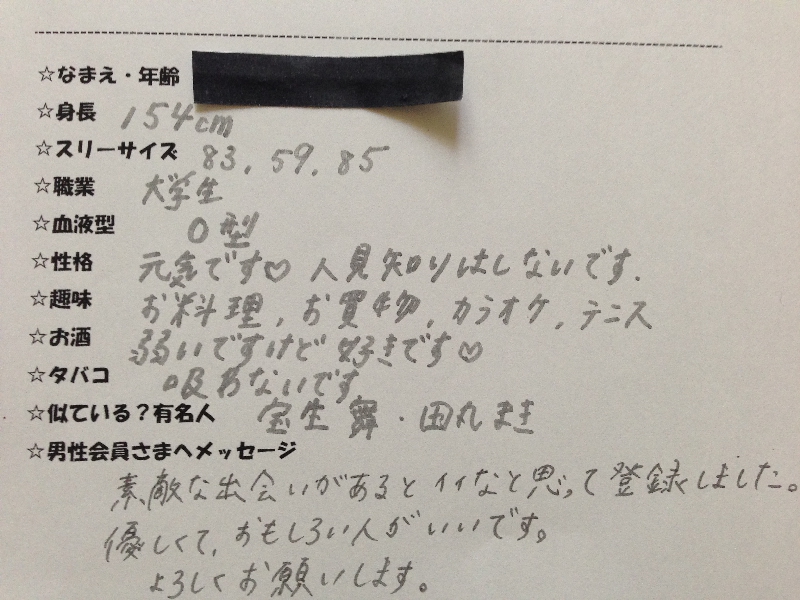 ☆なまえ・年齢
☆身長 154cm
☆スリーサイズ 83. 59. 85
☆職業 大学生
☆血液型 O型
☆性格 元気です♡ 人見知りはしないです.
☆趣味 お料理, お買物, カラオケ, テニス
☆お酒 弱いですけど好きです♡
☆タバコ 吸わないです
☆似ている?有名人 宝生舞・田丸まき
☆男性会員さまへメッセージ
素敵な出会いがあるとイイなと思って登録しました。
優しくて, おもしろい人がいいです。
よろしくお願いします。